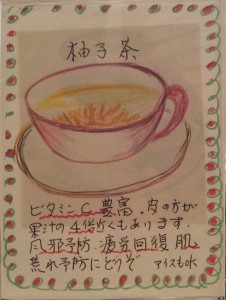 柚子茶
ビタミンC豊富。皮の方が
果汁の4倍近くもあります。
風邪予防・疲労回復、肌
荒れ予防にどうぞ アイスもok